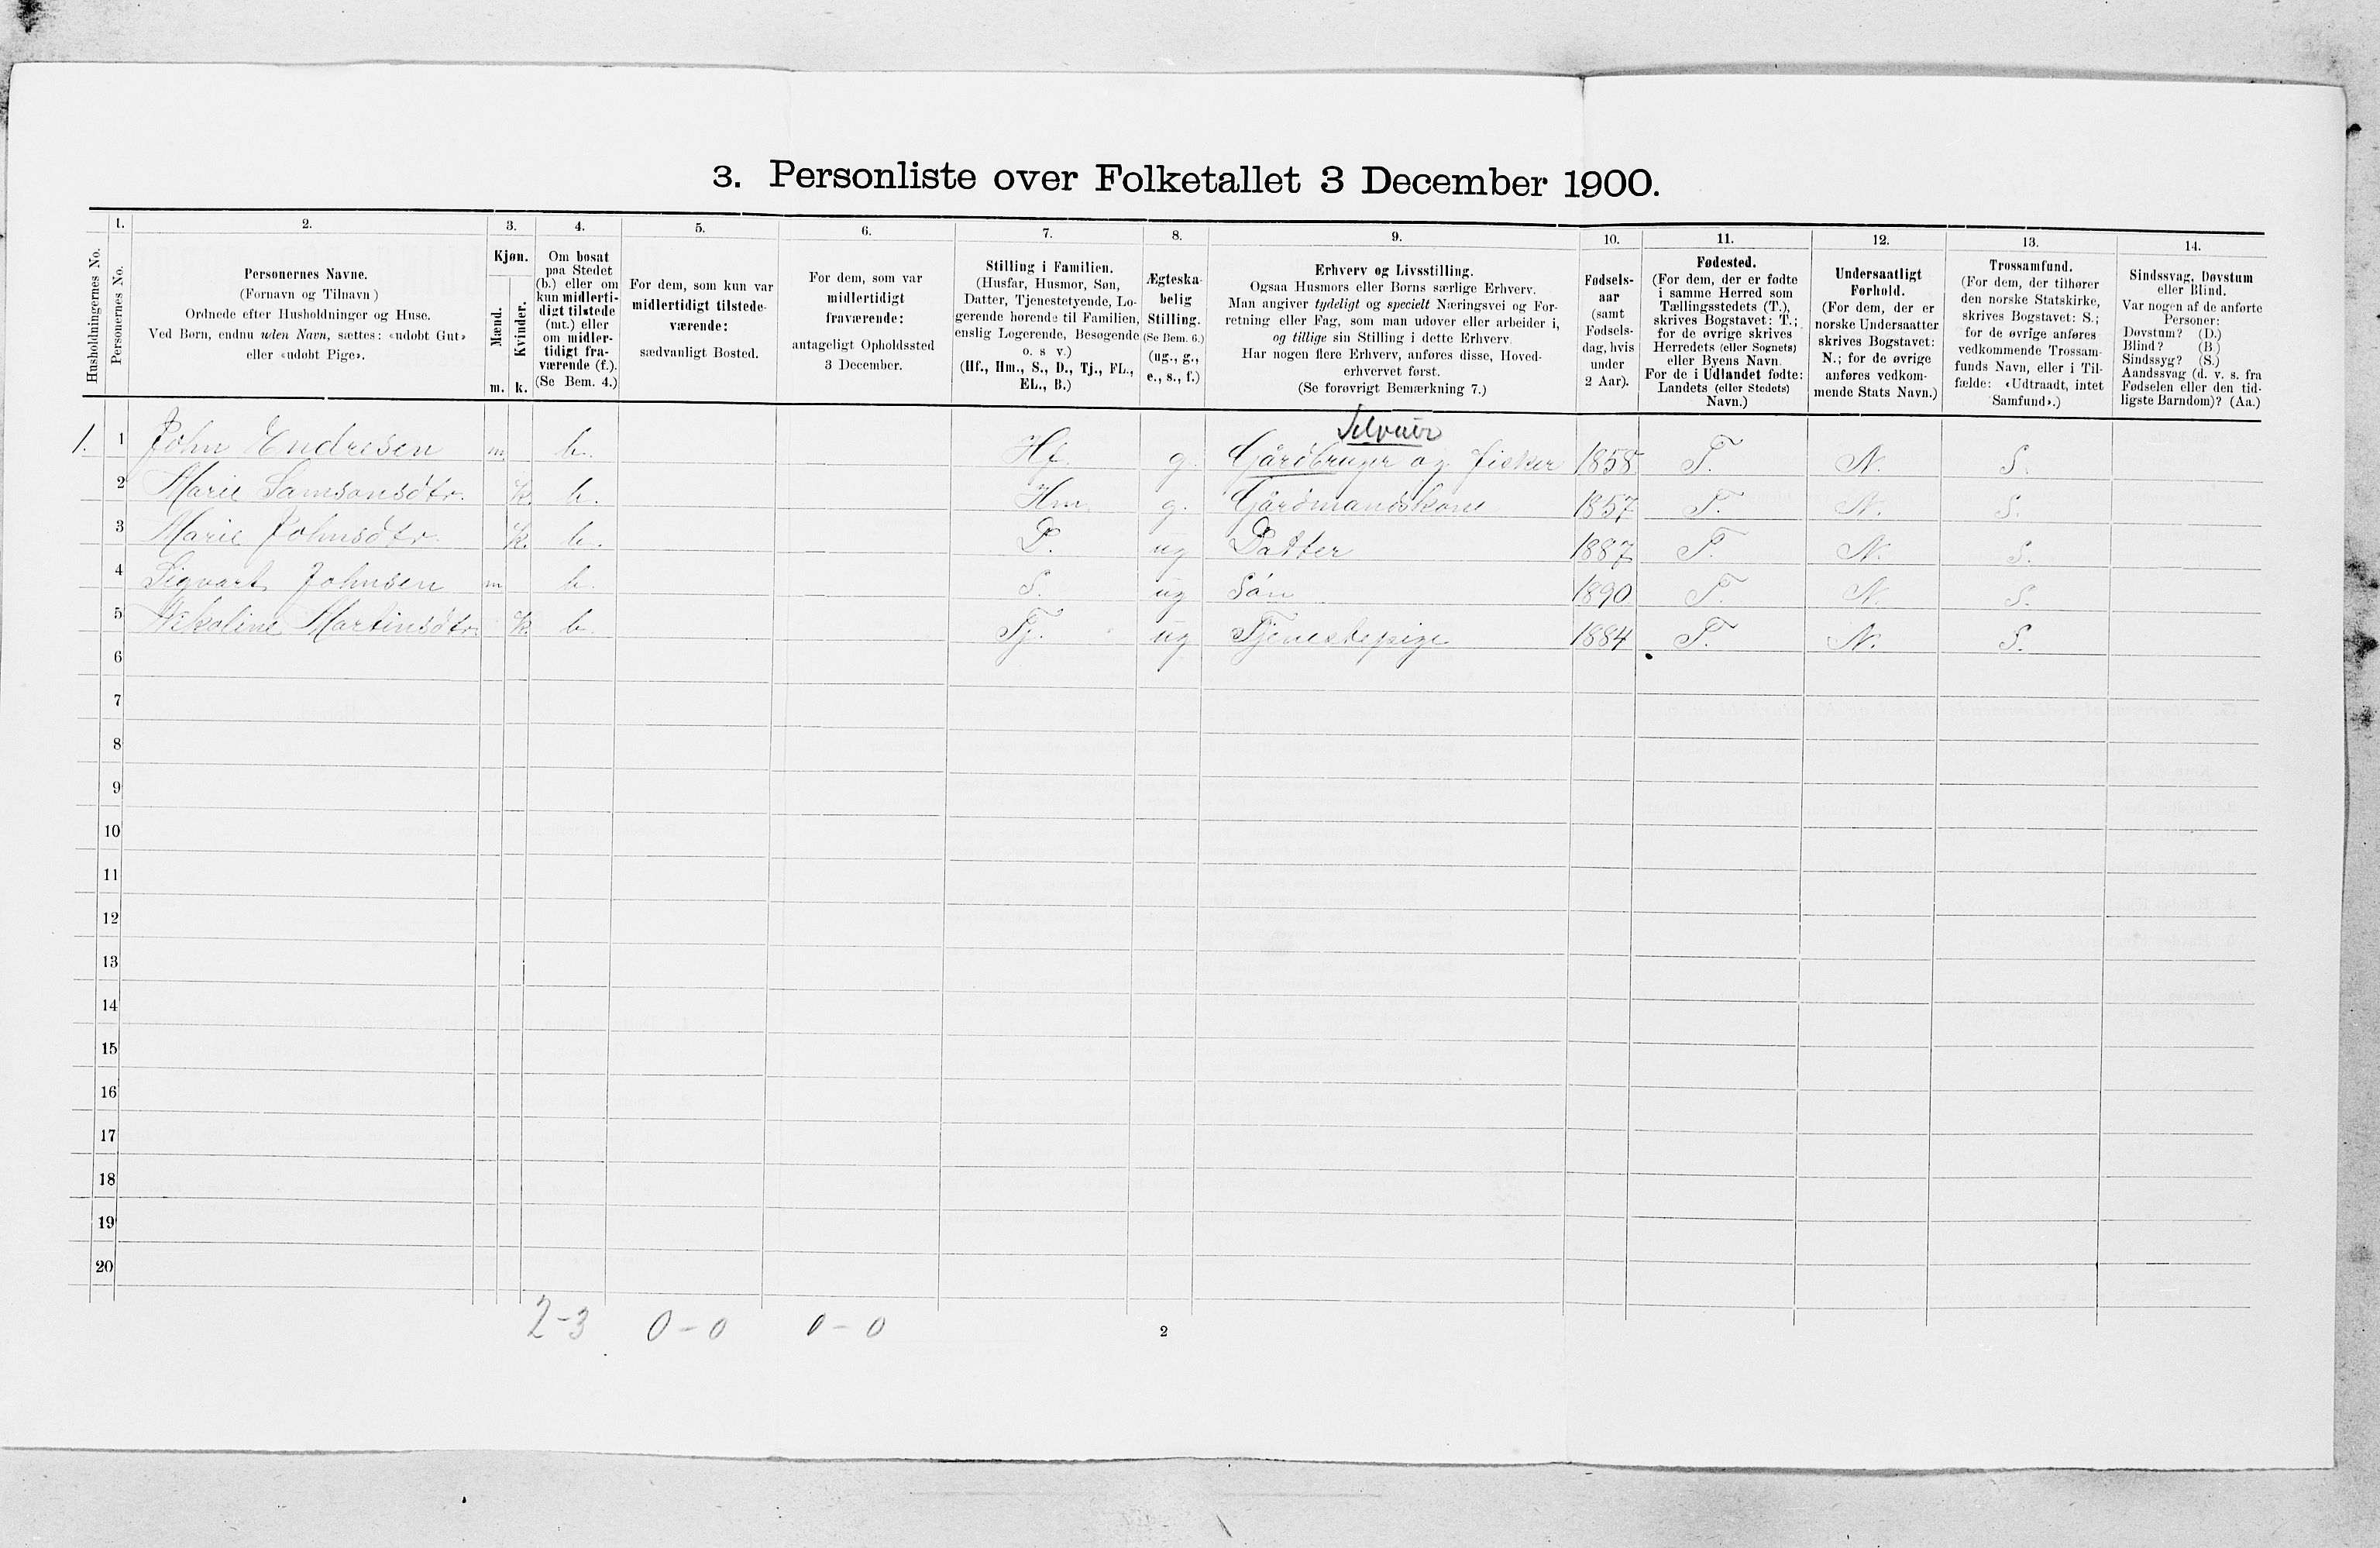 3. Personliste over Folketallet 3 December 1900.
Husholdningernes No.
1.
Personernes No.
2.
Personernes Navne.
(Fornavn og Tilnavn)
Ordnede efter Husholdninger og Huse.
Ved Børn, endnu uden Navn, sættes: «udøbt Gut»
eller «udøbt Pige».
3.
Kjøn.
Mænd.
Kvinder.
m. k.
4.
Om bosat
paa Stedet
(b.) eller om
kun midlerti-
digt tilstede
(mt.) eller
om midler-
tidigt fra-
værende (f.).
(Se Bem. 4.)
5.
For dem, som kun var
midlertidigt tilstede-
værende:
sædvanligt Bosted.
6.
For dem, som var
midlertidigt
fraværende:
antageligt Opholdssted
3 December.
7.
Stilling i Familien.
(Husfar, Husmor, Søn,
Datter, Tjenestetyende, Lo-
gerende hørende til Familien,
enslig Logerende, Besøgende
o. s v.)
(Hf., Hm., S., D., Tj., FL.,
EL., B.)
8.
Ægteska-
belig
Stilling.
(Se Bem. 6.)
(ug., g.,
e., s., f.)
9.
Erhverv og Livsstilling.
Ogsaa Husmors eller Børns særlige Erhverv.
Man angiver tydeligt og specielt Næringsvei og For-
retning eller Fag, som man udøver eller arbeider i,
og tillige sin Stilling i dette Erhverv.
Har nogen flere Erhverv, anføres disse, Hoved-
erhvervet først.
(Se forøvrigt Bemærkning 7.)
10.
Fødsels-
aar
(samt
Fødsels-
dag, hvis
under
2 Aar).
11.
Fødested.
(For dem, der er fødte
i samme Herred som
Tællingsstedets (T.),
skrives Bogstavet: T.;
for de øvrige skrives
Herredets (eller Sognets)
eller Byens Navn.
For de i Udlandet fødte:
Landets (eller Stedets)
Navn.)
12.
Undersaatligt
Forhold.
(For dem, der er
norske Undersaatter
skrives Bogstavet:
N.; for de øvrige
anføres vedkom-
mende Stats Navn.)
13.
Trossamfund.
(For dem, der tilhører
den norske Statskirke,
skrives Bogstavet: S.;
for de øvrige anføres
vedkommende Trossam-
funds Navn, eller i Til-
fælde: «Udtraadt, intet
Samfund».)
14.
Sindssvag, Døvstum
eller Blind.
Var nogen af de anførte
Personer:
Døvstum? (D.)
Blind? (B.)
Sindssyg? (S.)
Aandssvag (d. v. s. fra
Fødselen eller den tid-
ligste Barndom)? (Aa.)
Selveier
1. 1 John Endresen m b. Hf. g. Gårdbruger og fisker 1858 T. N. S.
2 Marie Samsonsdtr. k. b. Hm. g. Gårdmandskone 1857 T. N. S.
3 Marie Johnsdtr. k. b. D. ug Datter 1887 T. N. S.
4 Sigvart Johnsen m b. S. ug Søn 1890 T. N. S.
5 Nikoline Martinsdtr. k. b. Tj. ug Tjenestepige 1884 T. N. S.
6
7
8
9
10
11
12
13
14
15
16
17
18
19
20
2-3 0-0 0-0
2